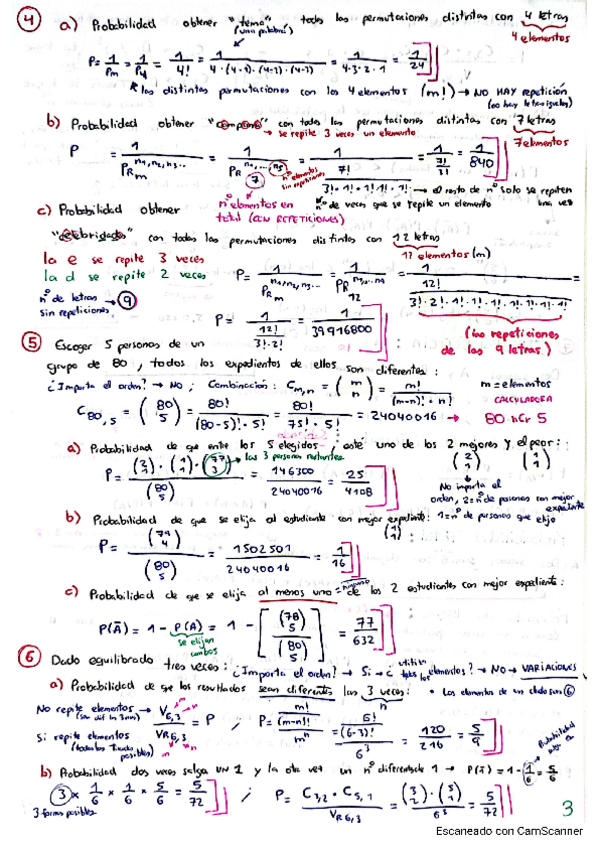 ④ a) Probabilidad obtener "tema", todas las permutaciones distintas con 4 letras
(una palabra) 4 elementos
P = 1/Pm = 1/P4 = 1/4! = 1/(4·(4-1)·(4-2)·(4-3)) = 1/(4·3·2·1) = 1/24
las distintas permutaciones con los 4 elementos (m!) → NO HAY REPETICIÓN
(no hay letras iguales)
b) Probabilidad obtener "compono" con todas las permutaciones distintas con 7 letras
→ se repite 3 veces un elemento 7 elementos
P = 1/PR m n1,n2,n3... = 1/PR 7 = 1/(7!/(3!·1!·1!·1!·1!)) = 1/(7!/3!) = 1/840
nº elementos sin repeticiones
→ el resto de nº solo se repiten una vez
nº elementos en total (CON REPETICIONES)
nº de veces que se repite un elemento
c) Probabilidad obtener
con todas las permutaciones distintas con 12 letras
la e se repite 3 veces
la d se repite 2 veces
elementos (m)
nº de letras sin repeticiones → 9
P = 1/PR m n1,n2,n3... = 1/PR 12 = 1/(12!/(3!·2!·1!·1!·1!·1!·1!·1!·1!)) =
P = 1/(12!/(3!·2!)) = 1/39916800
(no repeticiones de las 9 letras)
⑤ Escoger 5 personas de un
grupo de 80, todos los expedientes de ellos son diferentes:
¿Importa el orden? → NO; Combinación: Cm,n = (m n) = m!/((m-n)!·n!) m = elementos
CALCULADORA
C80,5 = (80 5) = 80!/((80-5)!·5!) = 80!/(75!·5!) = 24040016 → 80 nCr 5
a) Probabilidad de que entre los 5 elegidos, este uno de los 2 mejores y el peor:
→ las 3 personas restantes
P = (2 1)·(1 1)·(77 3)/(80 5) = 146300/24040016 = 25/4108
(2 1) (1 1)
No importa el orden, 2 = nº de personas con mejor expediente
1 = nº de personas que elijo
b) Probabilidad de que se elija al estudiante con mejor expediente: (1 1)
P = (79 4)/(80 5) = 1502501/24040016 = 1/16
c) Probabilidad de que se elija al menos uno = de los 2 estudiantes con mejor expediente:
P(Ā) = 1 - P(A) = 1 - [(78 5)/(80 5)] = 77/632
se elijan ambos
⑥ Dado equilibrado tres veces: ¿Importa el orden? → Si → ¿utiliza todos los elementos? → NO → VARIACIONES
a) Probabilidad de que los resultados sean diferentes las 3 veces: • Los elementos de un dado son 6
No repite elementos → V6,3
Si repite elementos → VR6,3
= P ; P = (m!/(m-n)!)/mⁿ = (6!/(6-3)!)/6³ = 120/216 = 5/9
b) Probabilidad dos veces salga un 1 y la otra vez un nº diferente de 1 → P(Ā) = 1 - 1/6 = 5/6
3 × 1/6 × 1/6 × 5/6 = 5/72 ; P = C3,2 · C5,1/VR6,3 = (3 2)·(5 1)/6³ = 5/72
3 formas posibles
3
Escaneado con CamScanner